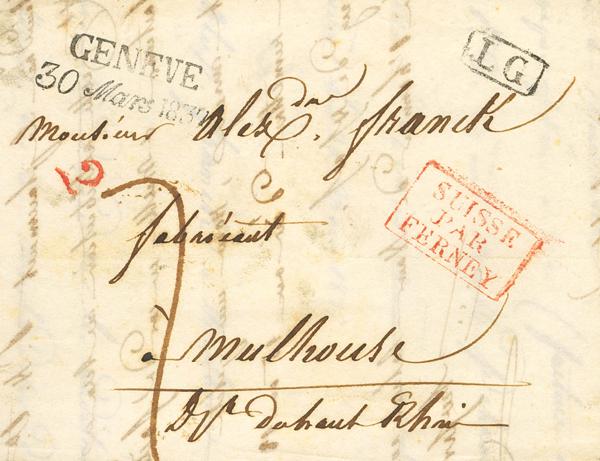 GENEVE
30 Mars
L G
Monsieur Alex.dre franck
SUISSE
PAR
FERNEY
fabricant
à Mulhouse
Dpt du haut Rhin